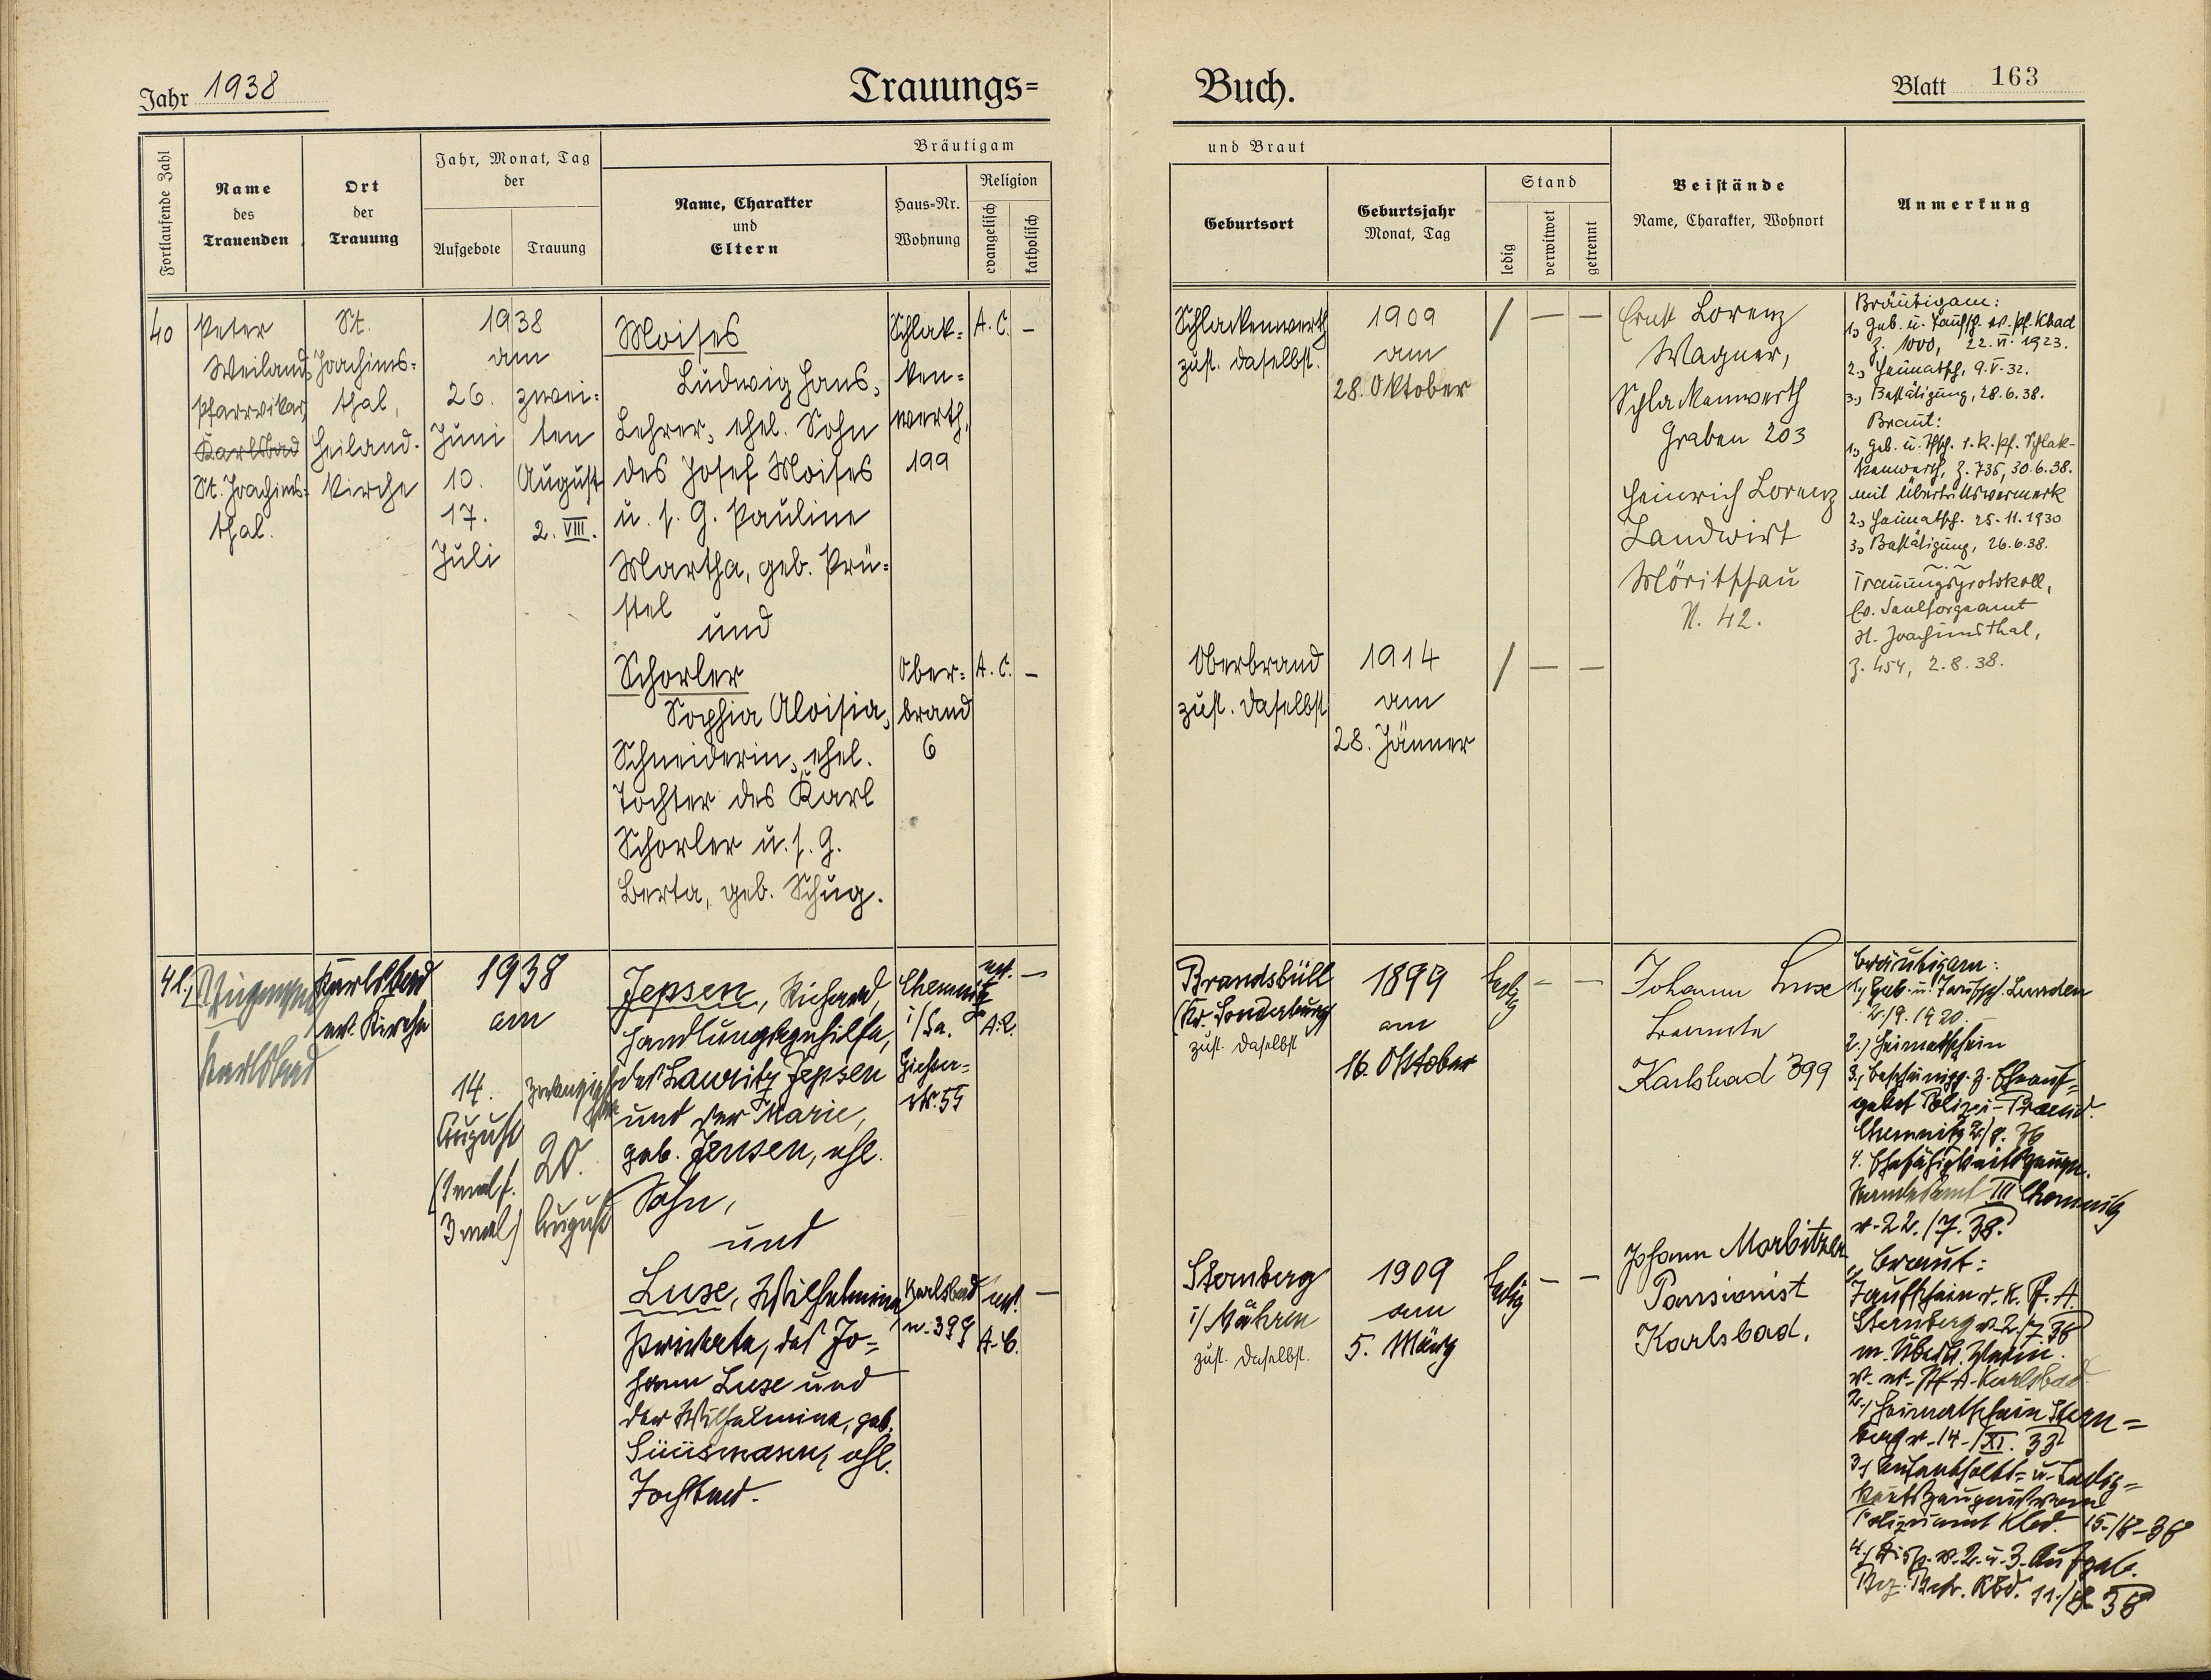 Jahr 1938
Trauungs=
Buch.
Blatt 163
Fortlaufende Zahl
Name
des
Trauenden
Ort
der
Trauung
Jahr, Monat, Tag
der
Aufgebote
Trauung
Bräutigam
Name, Charakter
und
Eltern
Haus=Nr.
Wohnung
Religion
evangelisch
katholisch
und Braut
Geburtsort
Geburtsjahr
Monat, Tag
Stand
ledig
verwitwet
getrennt
Beistände
Name, Charakter, Wohnort
Anmerkung
40
Peter
Weiland
Pfarrvikar
Karlsbad
St. Joachims=
thal.
St.
Joachims=
thal,
Heiland=
kirche
1938
am
26.
Juni
10.
17.
Juli
zwei=
ten
August
2. VIII.
Moises
Ludwig Hans,
Lehrer, ehel. Sohn
des Josef Moises
u. s. G. Pauline
Martha, geb. Prü=
stel
und
Schorler
Sophia Aloisia,
Schneiderin, ehel.
Tochter des Karl
Schorler u. s. G.
Berta, geb. Schug.
Schlak=
ken=
werth,
199
A. C. –
Ober=
brand
6
A. C. –
Schlackenwerth
zust. daselbst.
1909
am
28. Oktober
/ — —
Oberbrand
zust. daselbst
1914
am
28. Jänner
/ — —
Ernst Lorenz
Wagner,
Schlackenwerth
Graben 203
Heinrich Lorenz
Landwirt
Möritschau
N. 42.
Bräutigam:
1., Geb. u. Taufsch. ev. Pf. Kbad
Z. 1000, 22. VI. 1923.
2., Heimatsch, 9. V. 32.
3., Bestätigung, 28. 6. 38.
Braut:
1., Geb. u. Tfsch. r. k. Pf. Schlak-
kenwerth, Z. 735, 30. 6. 38.
mit Übertrittsvermerk
2., Heimatsch. 25. 11. 1930
3., Bestätigung, 26. 6. 38.
Trauungsprotokoll,
Ev. Seelsorgeamt
St. Joachimsthal,
Z. 454, 2. 8. 38.
41.,
Karlsbad
Karlsbad
ev. Kirche
1938
am
14.
August
(1 mal f.
3 mal)
zwanzigsten
20.
August
Jepsen, Richard,
Handlungsgehilfe,
des Lauritz Jepsen
und der Marie,
geb. Jensen, ehl.
Sohn,
und
Luxe, Wilhelmina,
Private, des Jo=
hann Luxe und
der Wilhelmine, geb.
ehl.
Tochter.
Chemnitz
i/Sa.
str. 55
ev.
A. L.
—
Karlsbad
n. 399
ev.
A. C.
—
Brandsbüll
(Kr. Sonderburg
zust. daselbst
1899
am
16. Oktober
ledig – –
Sternberg
i/ Mähren
zust. daselbst.
1909
am
5. März
ledig – –
Johann Luxe
Beamter
Karlsbad 399
Johann Morbitzer
Pensionist
Karlsbad.
Bräutigam:
1., Geb. u. Taufsch.
2./9. 1920.
2.) Heimatschein
3.,
Chemnitz
4. Ehefähigkeitszeugn.
Standesamt III Chemnitz
v. 22./7. 38.
Braut:
1., Taufschein r. k. Pf. A.
Sternberg v. 2./7. 38
Karlsbad
2., Heimatschein Stern=
berg v. 14./XI. 33
3., Aufenthalts= u. Ledig=
keitszeugnis vom
Polizeiamt Kbd. 15./8. 38
4., Disp. v. 2. u. 3. Aufgeb.
Kbd. 11./8. 38